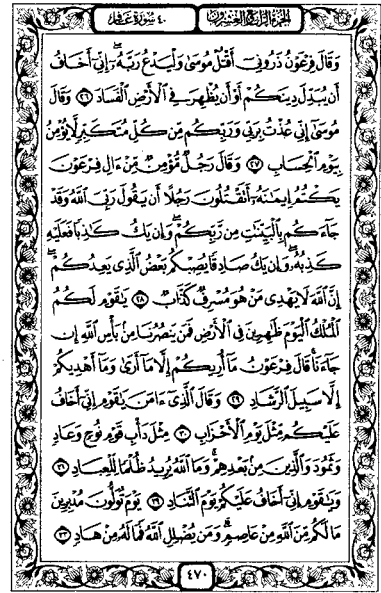 الجزء الرابع والعشرون
٤٠ سورة غافر
وَقَالَ فِرْعَوْنُ ذَرُونِىٓ أَقْتُلْ مُوسَىٰ وَلْيَدْعُ رَبَّهُۥٓ ۖ إِنِّىٓ أَخَافُ
أَن يُبَدِّلَ دِينَكُمْ أَوْ أَن يُظْهِرَ فِى ٱلْأَرْضِ ٱلْفَسَادَ ٢٦ وَقَالَ
مُوسَىٰٓ إِنِّى عُذْتُ بِرَبِّى وَرَبِّكُم مِّن كُلِّ مُتَكَبِّرٍ لَّا يُؤْمِنُ
بِيَوْمِ ٱلْحِسَابِ ٢٧ وَقَالَ رَجُلٌ مُّؤْمِنٌ مِّنْ ءَالِ فِرْعَوْنَ
يَكْتُمُ إِيمَٰنَهُۥٓ أَتَقْتُلُونَ رَجُلًا أَن يَقُولَ رَبِّىَ ٱللَّهُ وَقَدْ
جَآءَكُم بِٱلْبَيِّنَٰتِ مِن رَّبِّكُمْ ۖ وَإِن يَكُ كَٰذِبًا فَعَلَيْهِ
كَذِبُهُۥ ۖ وَإِن يَكُ صَادِقًا يُصِبْكُم بَعْضُ ٱلَّذِى يَعِدُكُمْ ۖ
إِنَّ ٱللَّهَ لَا يَهْدِى مَنْ هُوَ مُسْرِفٌ كَذَّابٌ ٢٨ يَٰقَوْمِ لَكُمُ
ٱلْمُلْكُ ٱلْيَوْمَ ظَٰهِرِينَ فِى ٱلْأَرْضِ فَمَن يَنصُرُنَا مِنۢ بَأْسِ ٱللَّهِ إِن
جَآءَنَا ۚ قَالَ فِرْعَوْنُ مَآ أُرِيكُمْ إِلَّا مَآ أَرَىٰ وَمَآ أَهْدِيكُمْ
إِلَّا سَبِيلَ ٱلرَّشَادِ ٢٩ وَقَالَ ٱلَّذِىٓ ءَامَنَ يَٰقَوْمِ إِنِّىٓ أَخَافُ
عَلَيْكُم مِّثْلَ يَوْمِ ٱلْأَحْزَابِ ٣٠ مِثْلَ دَأْبِ قَوْمِ نُوحٍ وَعَادٍ
وَثَمُودَ وَٱلَّذِينَ مِنۢ بَعْدِهِمْ ۚ وَمَا ٱللَّهُ يُرِيدُ ظُلْمًا لِّلْعِبَادِ ٣١
وَيَٰقَوْمِ إِنِّىٓ أَخَافُ عَلَيْكُمْ يَوْمَ ٱلتَّنَادِ ٣٢ يَوْمَ تُوَلُّونَ مُدْبِرِينَ
مَا لَكُم مِّنَ ٱللَّهِ مِنْ عَاصِمٍ ۗ وَمَن يُضْلِلِ ٱللَّهُ فَمَا لَهُۥ مِنْ هَادٍ ٣٣
٤٧٠